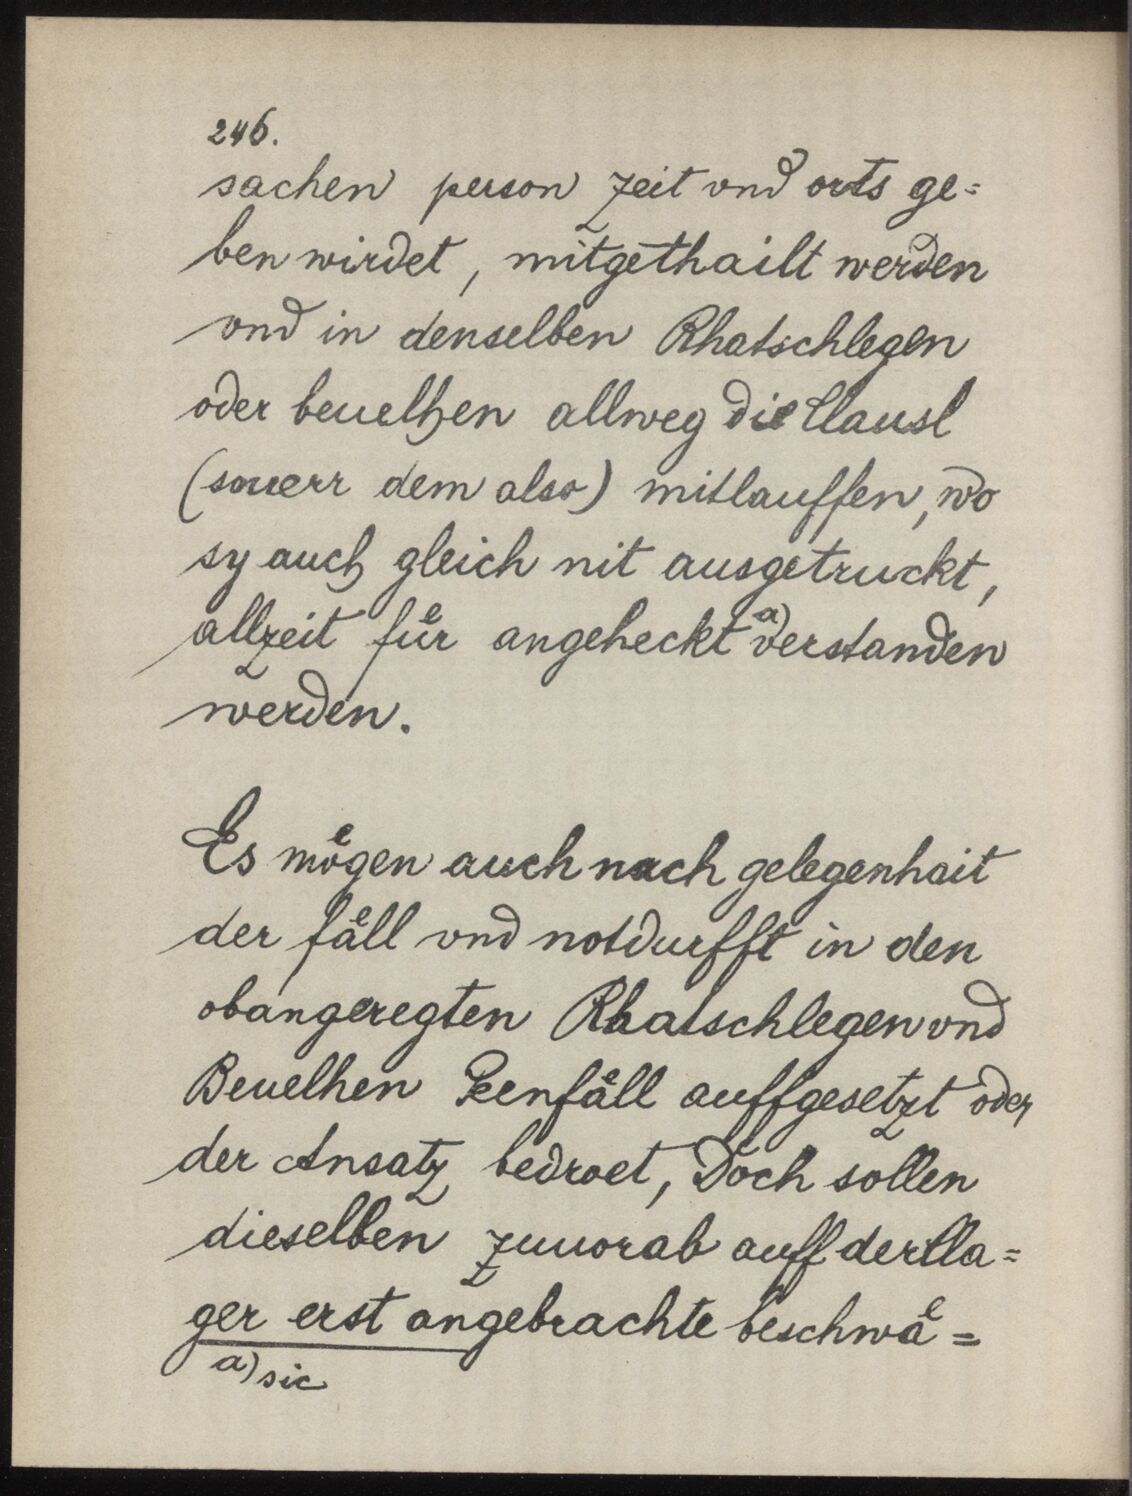 246.
sachen person zeit vnd orts ge=
ben wirdet, mitgethailt werden
vnd in denselben Rhatschlegen
oder beuelhen allweg die Clausl
(souerr dem also) mitlauffen, wo
sy auch gleich nit ausgetruckt,
allzeit fuͤr angeheckt a) verstanden
werden.
Es moͤgen auch nach gelegenhait
der faͤll vnd notdurfft in den
obangeregten Rhatschlegen vnd
Beuelhen Peenfaͤll auffgesetzt oder
der Ansatz bedroet, Doch sollen
dieselben zuuorab auff der Cla=
ger erst angebrachte beschwaͤ=
a) sic